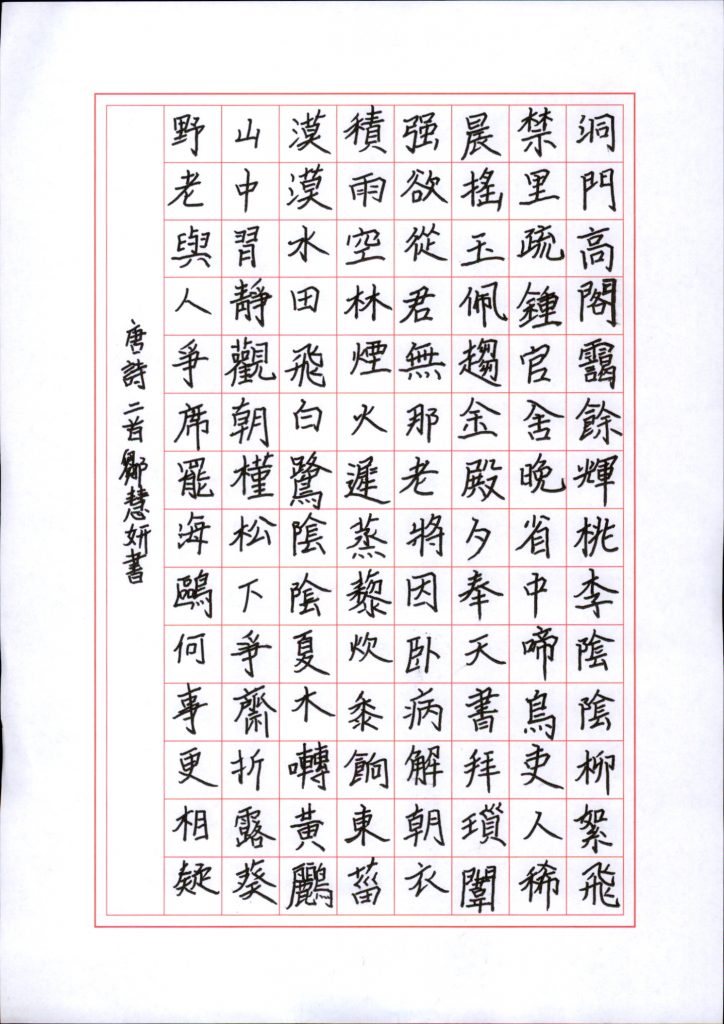 洞門高閣靄餘輝桃李陰陰柳絮飛
禁里疏鍾官舍晚省中啼鳥吏人稀
晨搖玉佩趨金殿夕奉天書拜瑣闈
强欲從君無那老將因卧病解朝衣
積雨空林煙火遲蒸黎炊黍餉東菑
漠漠水田飛白鷺陰陰夏木囀黃鸝
山中習靜觀朝槿松下爭齋折露葵
野老與人爭席罷海鷗何事更相疑
唐詩二首鄒慧妍書